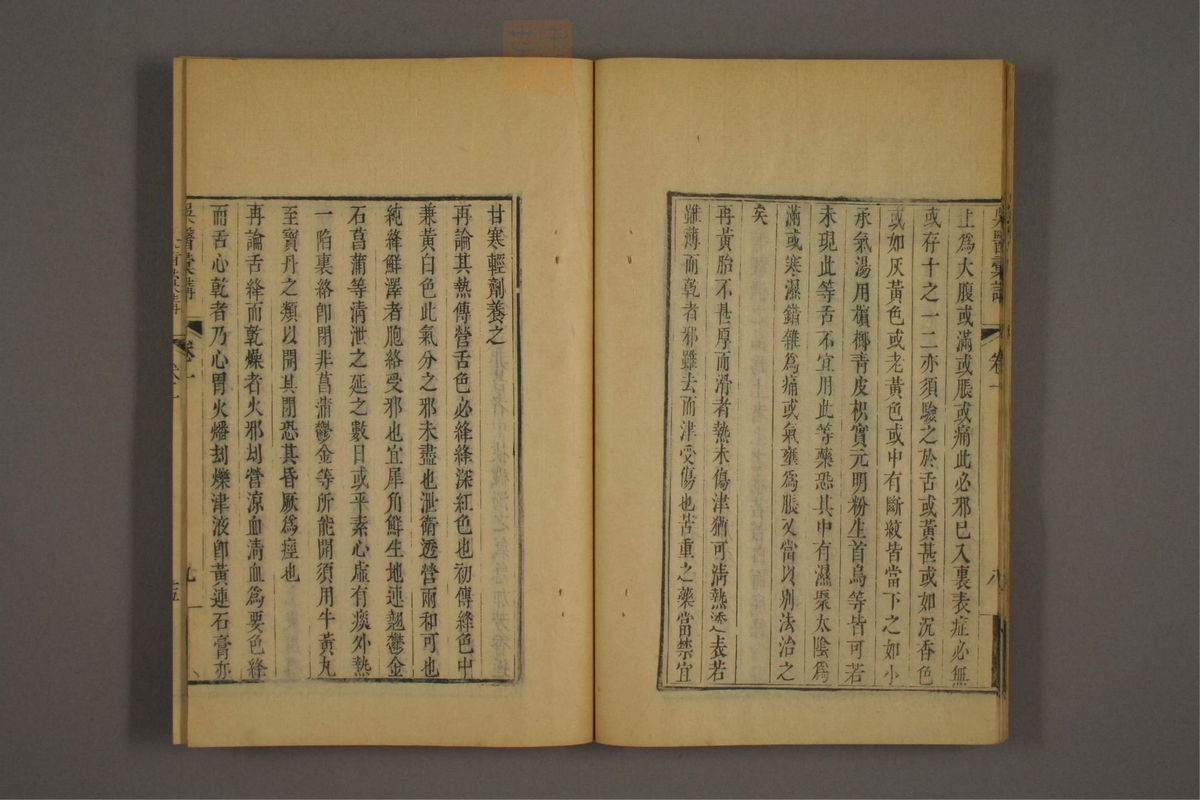 上爲大腹或滿或脹或痛此必邪已入裏表症必無
或存十之一二亦須驗之於舌或黃甚或如沉香色
或如灰黃色或老黃色或中有斷紋皆當下之如小
承氣湯用檳榔靑皮枳實元明粉生首烏等皆可若
未現此等舌不宜用此等藥恐其中有濕聚太陰爲
滿或寒濕錯雜爲痛或氣壅爲脹又當以別法治之
矣
再黃胎不甚厚而滑者熱未傷津猶可淸熱透表若
雖薄而乾者邪雖去而津受傷也苦重之藥當禁宜
甘寒輕劑養之
再論其熱傳營舌色必絳絳深紅色也初傳絳色中
兼黃白色此氣分之邪未盡也泄衛透營兩和可也
純絳鮮澤者胞絡受邪也宜犀角鮮生地連翹鬱金
石菖蒲等淸泄之延之數日或平素心虛有痰外熱
一陷裏絡卽閉非菖蒲鬱金等所能開須用牛黃丸
至寶丹之類以開其閉恐其昏厥爲痙也
再論舌絳而乾燥者火邪刧營涼血淸血爲要色絳
而舌心乾者乃心胃火燔刧爍津液卽黃連石膏亦
吳醫彙講
卷一
九